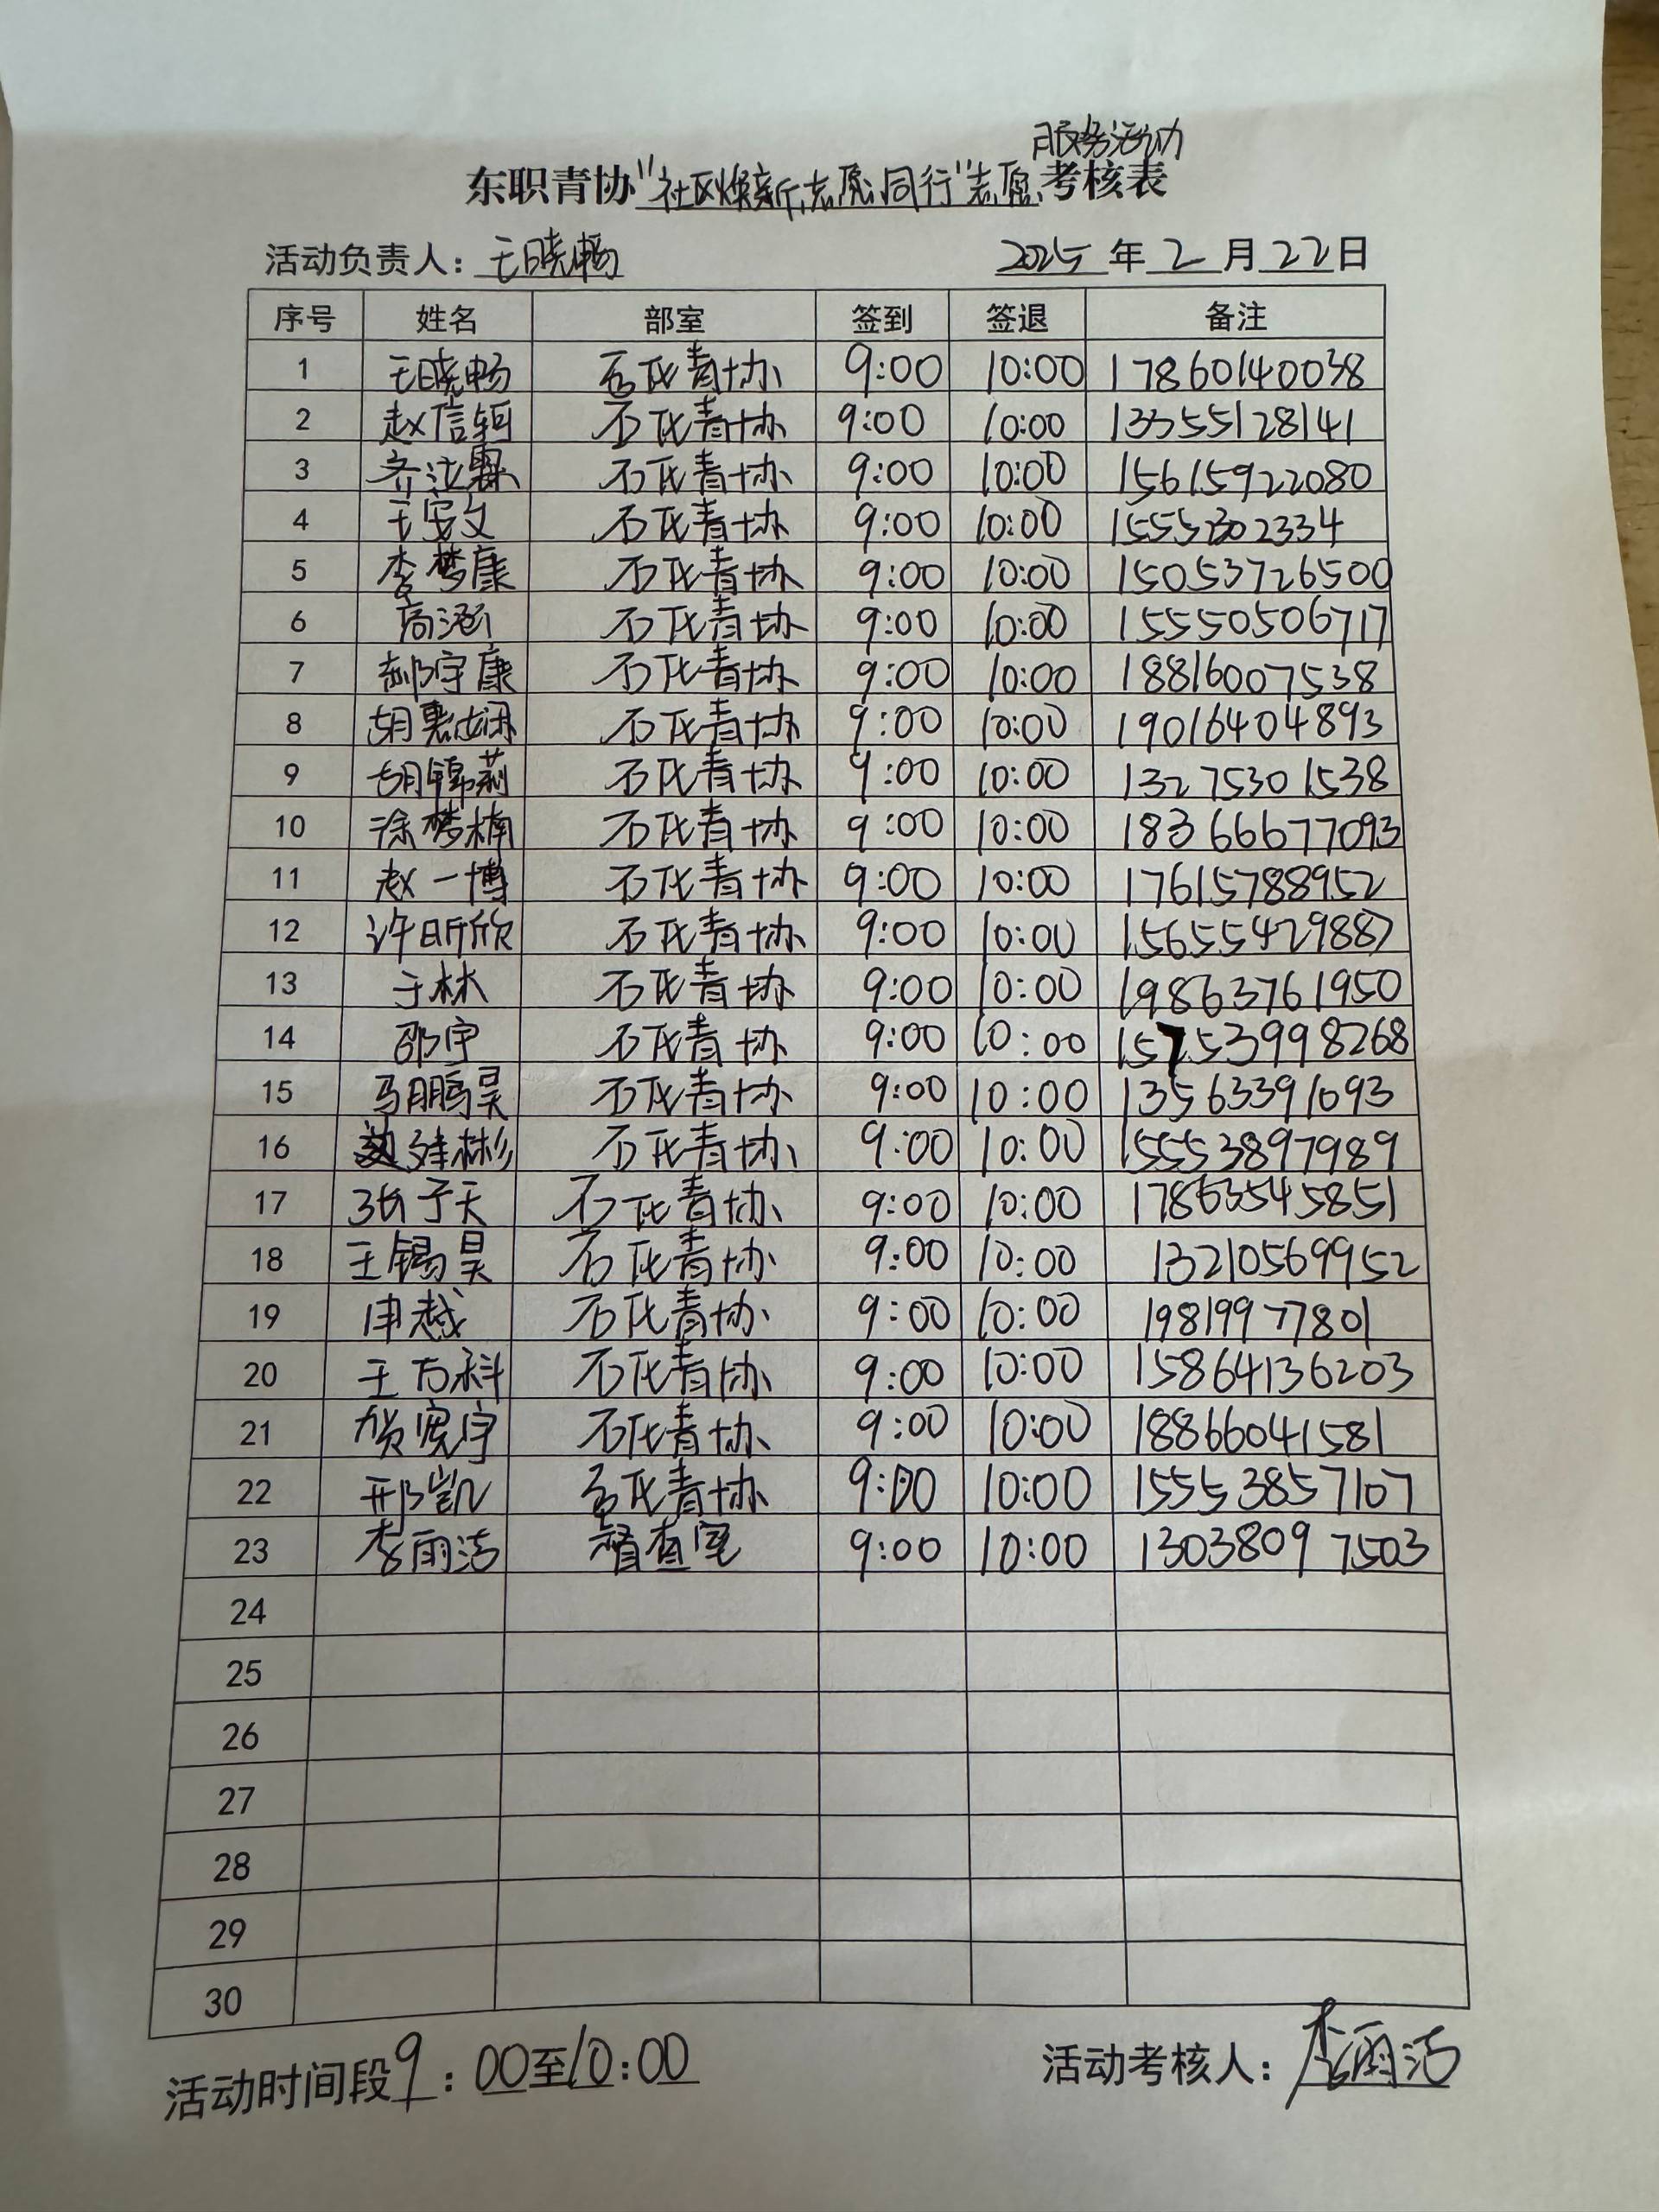 服务活动
东职青协"社区焕新,志愿同行"志愿考核表
活动负责人：王晓畅 2025年2月22日
序号 姓名 部室 签到 签退 备注
1 王晓畅 石化青协 9:00 10:00 17860140038
2 赵信轲 石化青协 9:00 10:00 13355128141
3 齐汝 石化青协 9:00 10:00 15615922080
4 王安文 石化青协 9:00 10:00
5 李梦康 石化青协 9:00 10:00 15053726500
6 高涵 石化青协 9:00 10:00 15550506717
7 郝宇康 石化青协 9:00 10:00 18816007538
8 胡惠娴 石化青协 9:00 10:00 19016404893
9 胡锦莉 石化青协 9:00 10:00 13275301538
10 涂梦楠 石化青协 9:00 10:00 18366677093
11 赵一博 石化青协 9:00 10:00 17615788952
12 许昕欣 石化青协 9:00 10:00 15655429887
13 于林 石化青协 9:00 10:00 19863761950
14 邵宇 石化青协 9:00 10:00
15 马鹏昊 石化青协 9:00 10:00 13563391693
16 彬 石化青协 9:00 10:00 15553897989
17 张子天 石化青协 9:00 10:00 17863545851
18 王锡昊 石化青协 9:00 10:00 13210569952
19 申越 石化青协 9:00 10:00 19819977801
20 王万科 石化青协 9:00 10:00 15864136203
21 贺宽宇 石化青协 9:00 10:00 18866041581
22 邢凯 石化青协 9:00 10:00 15553857107
23 李雨洁 督查室 9:00 10:00 13038097503
24
25
26
27
28
29
30
活动时间段9：00至10:00 活动考核人：李雨洁